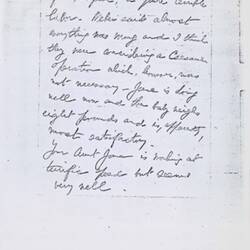 labor.
almost
everything was wrong and I think
they were considering a Cesarean
operation which, however, was
not necessary - Jane is doing
well now and the baby weighs
eight pounds and is, apparently,
most satisfactory.
Your Aunt Jane is working at
terrific speed but seems
very well.